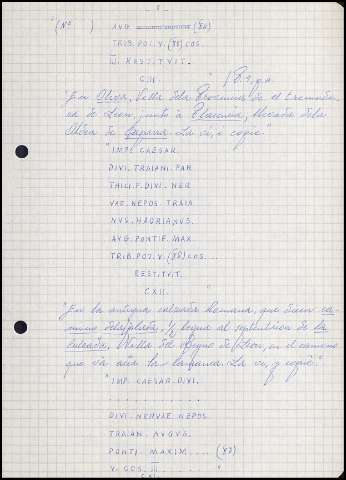 "(Nº ) AVG. (80)
TRIB. POT. V. (85) COS.
III. RESTVIT.
C.II. "
"En Oliva, Villa dela Provincia de Estremadu
ra de Leon, junto á Plasencia, llevada dela
Aldea de Caparra. La vi, é copie."
"IMP. CAESAR.
DIVI. TRAIANI. PAR
THICI. F. DIVI. NER
VAE. NEPOS. TRAIA
NVS. HADRIANVS.
AVG. PONTIF. MAX.
TRIB. POT. V. (85) COS...
RESTIT.
C.XII. "
"En la antigua calzada Romana, que dicen ca-
mino dela plata, y llegua al septentrion de la
Calzada, Villa del Reyno de Leon, en el camino
que va á la . La vi, y copié."
"IMP. CAESAR. DIVI.
. . . . . . . . . . .
DIVI. NERVAE. NEPOS.
TRAIAN. AVGVS.
PONTI. MAXIM.... (82)
V. COS. "